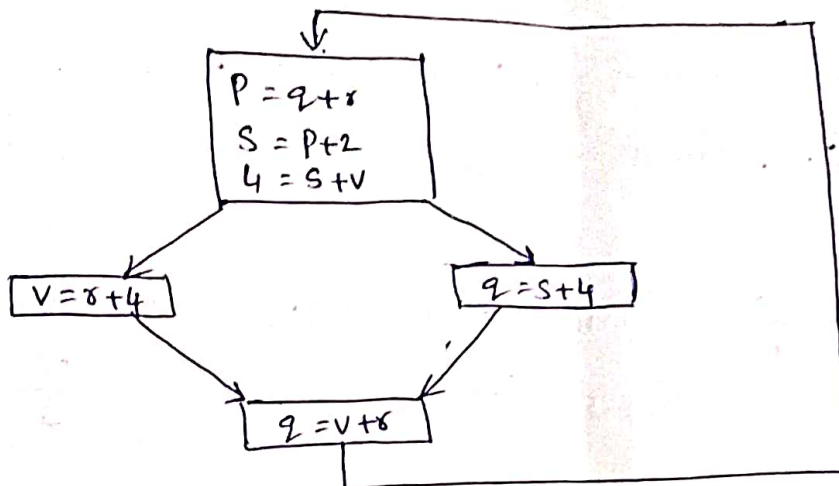 P = q+r
S = P+2
4 = S+V
V = r+4
q = S+4
q = V+r